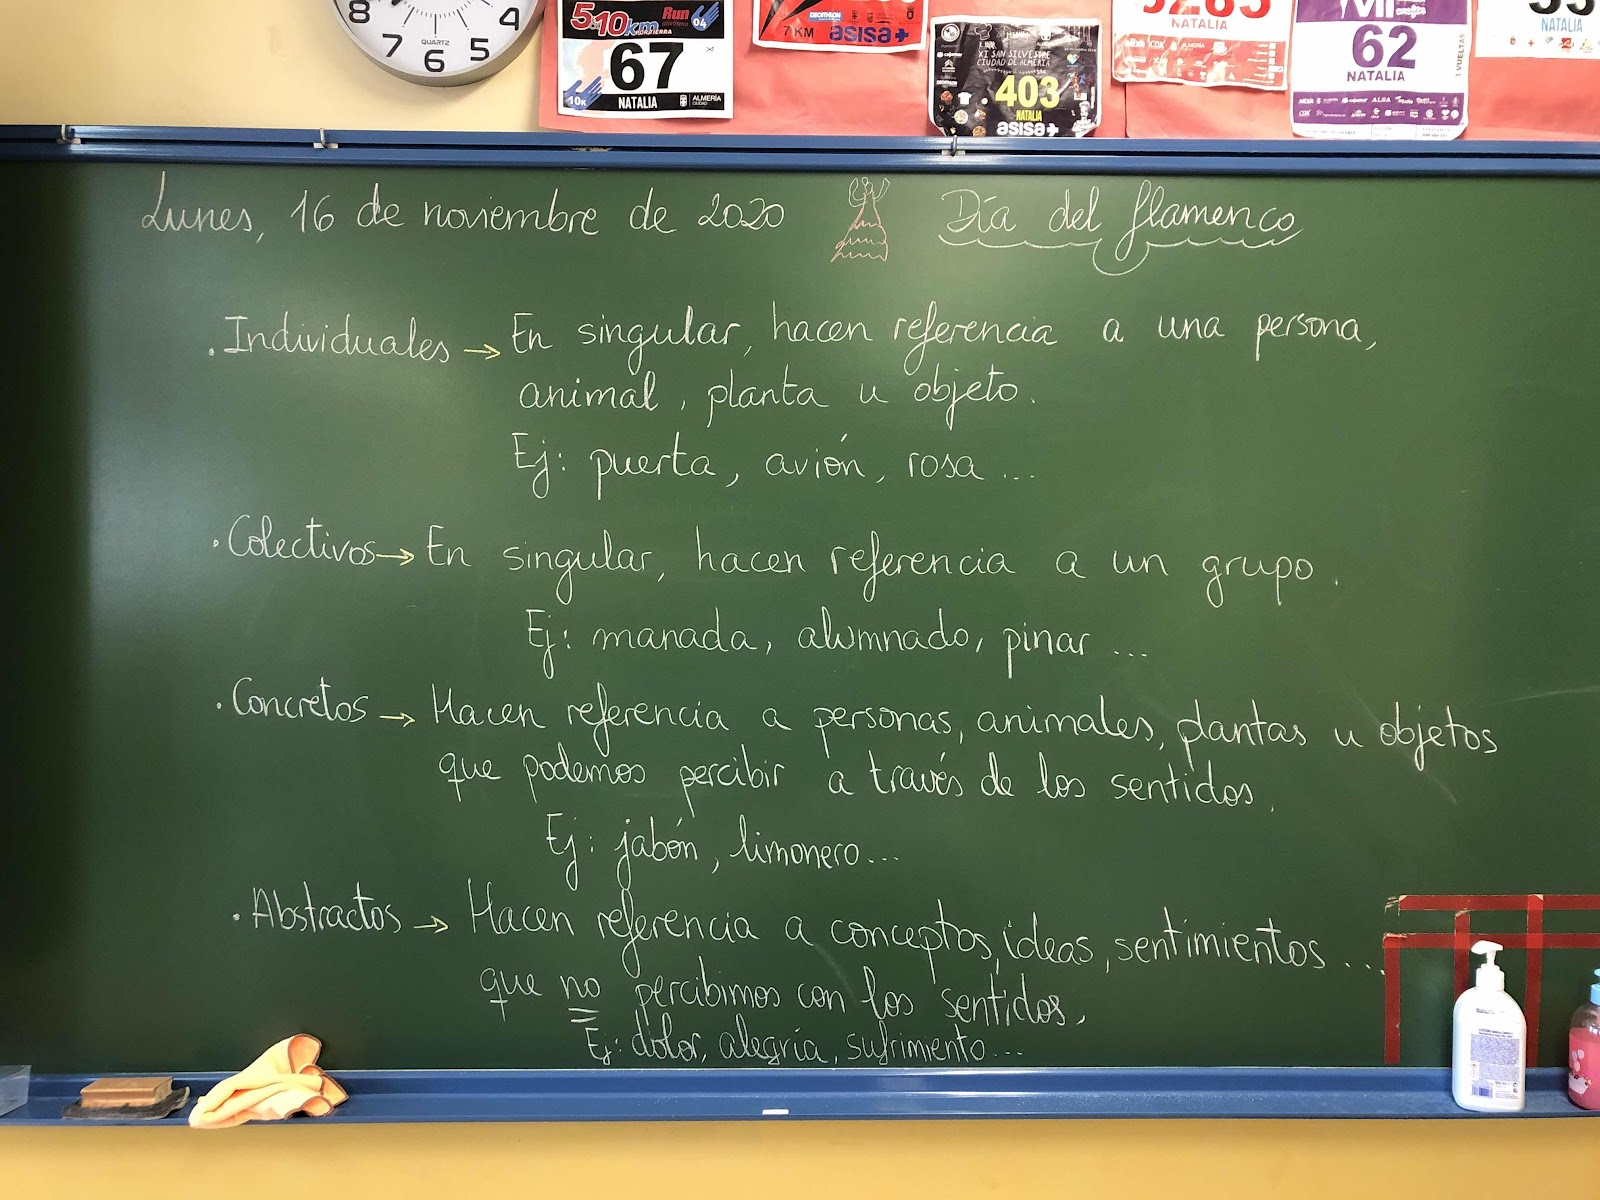 8 7 6 5 4
QUARTZ
5 10km Run
04
67
10K NATALIA ALMERÍA
CIUDAD
DECATHLON
7 KM asisa+
XI SAN SILVESTRE
CIUDAD DE ALMERÍA
403
NATALIA
asisa+
NATALIA
62
NATALIA
3 VUELTAS
NATALIA
Lunes, 16 de noviembre de 2020 Día del flamenco
. Individuales → En singular, hacen referencia a una persona,
animal, planta u objeto.
Ej: puerta, avión, rosa ...
. Colectivos → En singular, hacen referencia a un grupo.
Ej: manada, alumnado, pinar ...
. Concretos → Hacen referencia a personas, animales, plantas u objetos
que podemos percibir a través de los sentidos.
Ej: jabón, limonero...
. Abstractos → Hacen referencia a conceptos, ideas, sentimientos ...
que no percibimos con los sentidos.
Ej: dolor, alegría, sufrimiento...